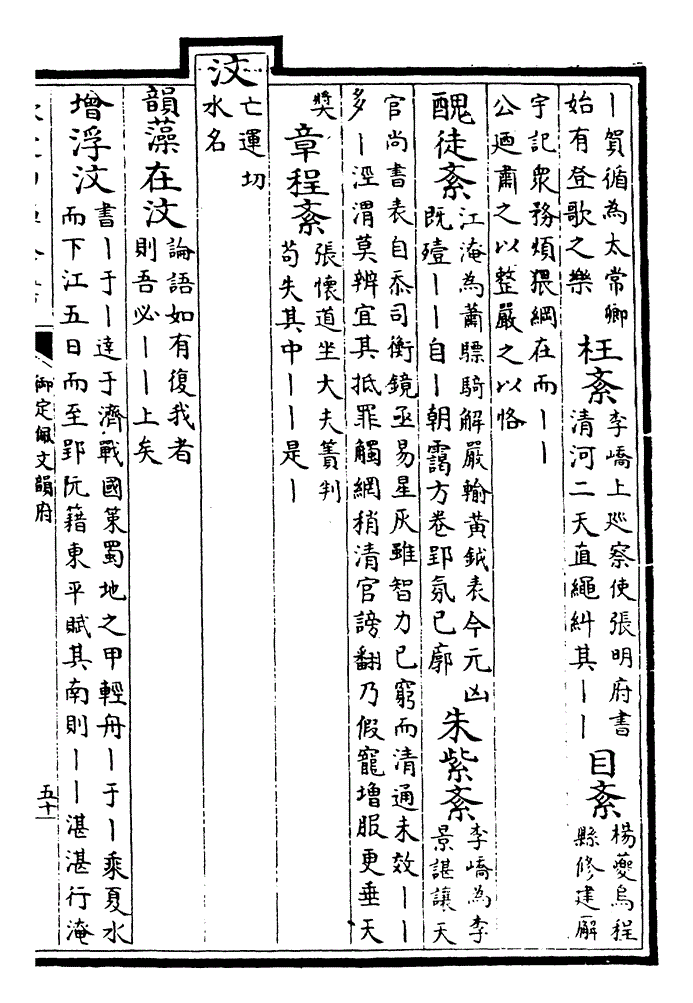 丨賀循為太常卿
始有登歌之樂
枉紊
李嶠上廵察使張明府書
清河二天直繩糾其丨丨
目紊
楊夔烏程
縣修建廨
宇記衆務煩猥綱在而丨丨
公廼肅之以整嚴之以恪
醜徒紊
江淹為蕭驃騎解嚴輸黄鉞表今元凶
既殪丨丨自丨朝靄方卷郢氛已廓
朱紫紊
李嶠為李
景諶讓天
官尚書表自忝司衡鏡亟易星灰雖智力已窮而清通未效丨丨
多丨涇渭莫辨宜其抵罪觸網稍清官謗翻乃假寵增服更垂天
奬
章程紊
張懷道坐大夫簀判
苟失其中丨丨是丨
汶
亡運切
水名
韻藻在汶
論語如有復我者
則吾必丨丨上矣
增浮汶
書丨于丨達于濟戰國策蜀地之甲輕舟丨于丨乘夏水
而下江五日而至郢阮籍東平賦其南則丨丨湛湛行淹
御定佩文韻府
五十一